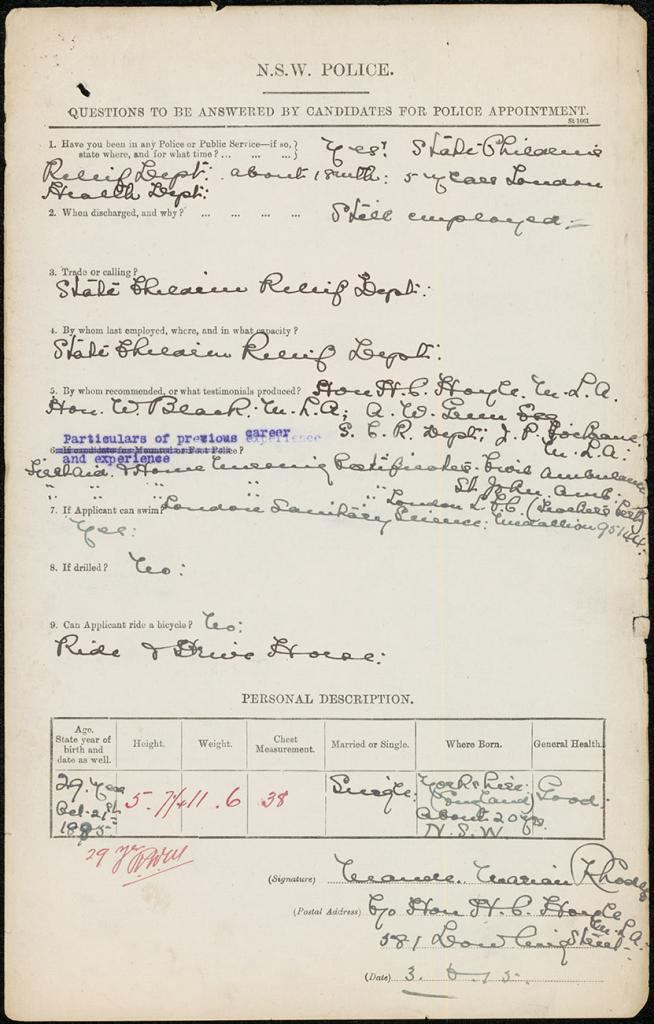 N.S.W. POLICE.
QUESTIONS TO BE ANSWERED BY CANDIDATES FOR POLICE APPOINTMENT.
St 1061
1. Have you been in any Police or Public Service—if so, } Yes: State Childrens
state where, and for what time? ... ... ... }
Relief Dept: about 18 mths: 5 years London
Health Dept:
2. When discharged, and why? ... ... ... ... Still employed
3. Trade or calling?
State Children Relief Dept:
4. By whom last employed, where, and in what capacity?
State Children Relief Dept:
5. By whom recommended, or what testimonials produced? Hon H. C. Hoyle. M.L.A.
Hon. W. Black. M.L.A; A. W. Green Esq
S. C. R. Dept; J. P. Cochrane
M.L.A.
Particulars of previous career
and experience
First Aid & Home Nursing Certificates. Civil Ambulance
" " " " St. John Amb.
" " London L.C.C. (Teachers Cert)
7. If Applicant can swim? London Sanitary Science: Medallion 95144:
Yes:
8. If drilled? No:
9. Can Applicant ride a bicycle? No:
Ride & Drive Horse:
PERSONAL DESCRIPTION.
Age. State year of birth and date as well. Height. Weight. Chest Measurement. Married or Single. Where Born. General Health.
29 Yrs Oct. 21st 1885 5. 7¼ 11. 6 38 Single. Yorkshire England About 20 yrs N.S.W. Good.
29 yrs
(Signature) Maude. Marian Rhodes
(Postal Address) C/o Hon H. C. Hoyle M.L.A.
581 Dowling Street
(Date) 3. 6. 15.